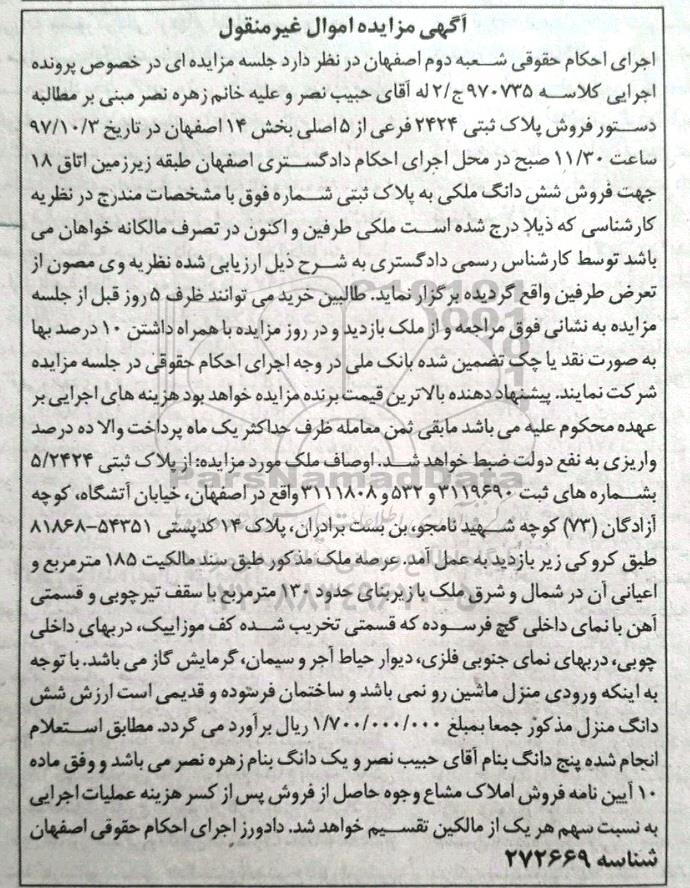 آگهی مزایده اموال غیرمنقول
اجرای احکام حقوقی شعبه دوم اصفهان در نظر دارد جلسه مزایده ای در خصوص پرونده
اجرایی کلاسه ۹۷۰۷۳۵ج/۲ له آقای حبیب نصر و علیه خانم زهره نصر مبنی بر مطالبه
دستور فروش پلاک ثبتی ۲۴۲۴ فرعی از ۵ اصلی بخش ۱۴ اصفهان در تاریخ ۹۷/۱۰/۳
ساعت ۱۱/۳۰ صبح در محل اجرای احکام دادگستری اصفهان طبقه زیرزمین اتاق ۱۸
جهت فروش شش دانگ ملکی به پلاک ثبتی شماره فوق با مشخصات مندرج در نظریه
کارشناسی که ذیلا درج شده است ملکی طرفین و اکنون در تصرف مالکانه خواهان می
باشد توسط کارشناس رسمی دادگستری به شرح ذیل ارزیابی شده نظریه وی مصون از
تعرض طرفین واقع گردیده برگزار نماید. طالبین خرید می توانند ظرف ۵ روز قبل از جلسه
مزایده به نشانی فوق مراجعه و از ملک بازدید و در روز مزایده با همراه داشتن ۱۰ درصد بها
به صورت نقد یا چک تضمین شده بانک ملی در وجه اجرای احکام حقوقی در جلسه مزایده
شرکت نمایند. پیشنهاد دهنده بالاترین قیمت برنده مزایده خواهد بود هزینه های اجرایی بر
عهده محکوم علیه می باشد مابقی ثمن معامله ظرف حداکثر یک ماه پرداخت والا ده درصد
واریزی به نفع دولت ضبط خواهد شد. اوصاف ملک مورد مزایده: از پلاک ثبتی ۵/۲۴۲۴
بشماره های ثبت ۳۱۱۹۶۹۰ و ۵۳۲ و ۳۱۱۱۸۰۸ واقع در اصفهان، خیابان آتشگاه، کوچه
آزادگان (۷۳) کوچه شهید نامجو، بن بست برادران، پلاک ۱۴ کدپستی ۵۴۳۵۱-۸۱۸۶۸
طبق کروکی زیر بازدید به عمل آمد. عرصه ملک مذکور طبق سند مالکیت ۱۸۵ مترمربع و
اعیانی آن در شمال و شرق ملک با زیربنای حدود ۱۳۰ مترمربع با سقف تیرچوبی و قسمتی
آهن با نمای داخلی گچ فرسوده که قسمتی تخریب شده کف موزاییک، دربهای داخلی
چوبی، دربهای نمای جنوبی فلزی، دیوار حیاط آجر و سیمان، گرمایش گاز می باشد. با توجه
به اینکه ورودی منزل ماشین رو نمی باشد و ساختمان فرسوده و قدیمی است ارزش شش
دانگ منزل مذکور جمعا بمبلغ ۱/۷۰۰/۰۰۰/۰۰۰ ریال برآورد می گردد. مطابق استعلام
انجام شده پنج دانگ بنام آقای حبیب نصر و یک دانگ بنام زهره نصر می باشد و وفق ماده
۱۰ آیین نامه فروش املاک مشاع وجوه حاصل از فروش پس از کسر هزینه عملیات اجرایی
به نسبت سهم هر یک از مالکین تقسیم خواهد شد. دادورز اجرای احکام حقوقی اصفهان
شناسه ۲۷۲۶۶۹
ParsNamadData